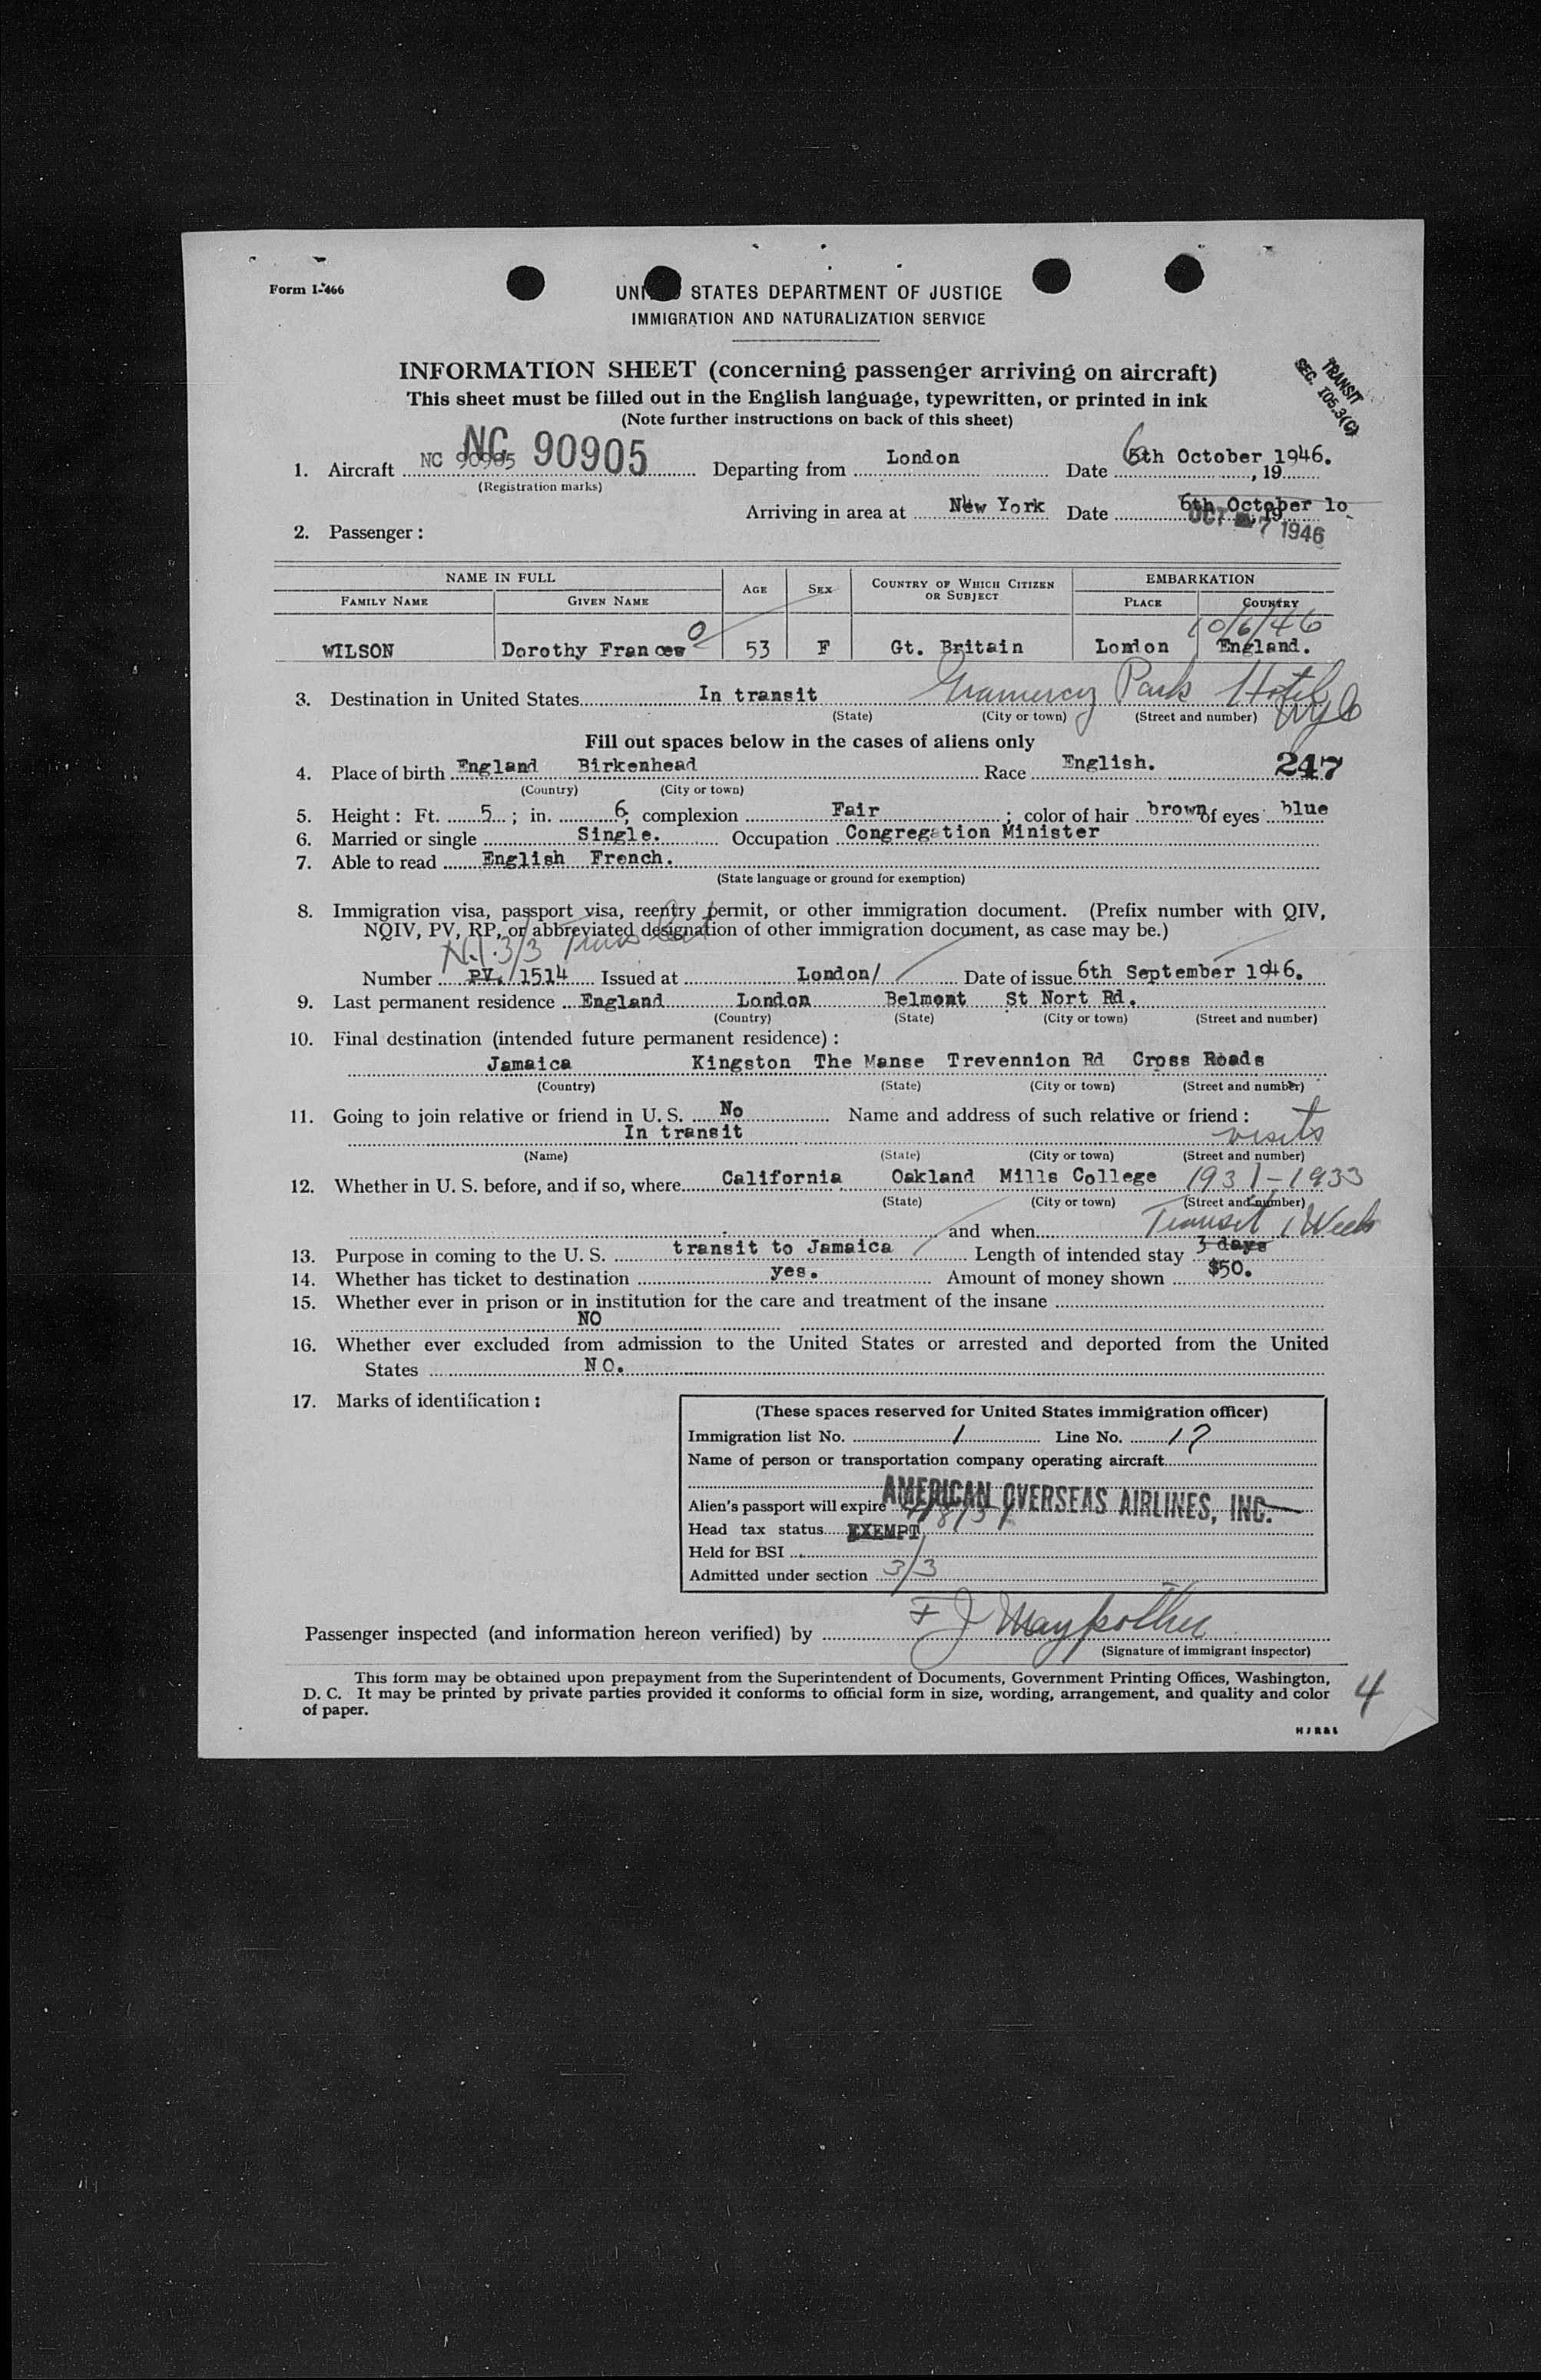 Form I-466
UNITED STATES DEPARTMENT OF JUSTICE
IMMIGRATION AND NATURALIZATION SERVICE
INFORMATION SHEET (concerning passenger arriving on aircraft)
This sheet must be filled out in the English language, typewritten, or printed in ink
(Note further instructions on back of this sheet)
TRANSIT
SEC. 105.3(C)
1. Aircraft NC 90905 NC 90905 Departing from London Date 6th October 1946. , 19
(Registration marks)
Arriving in area at New York Date 6th October 19 , 19 OCT 7 1946
2. Passenger:
NAME IN FULL AGE SEX COUNTRY OF WHICH CITIZEN OR SUBJECT EMBARKATION
FAMILY NAME GIVEN NAME PLACE COUNTRY
10/6/46
WILSON Dorothy Frances 53 F Gt. Britain London England.
3. Destination in United States In transit Gramercy Park Hotel NYC
(State) (City or town) (Street and number)
Fill out spaces below in the cases of aliens only
4. Place of birth England Birkenhead Race English. 247
(Country) (City or town)
5. Height: Ft. 5; in. 6; complexion Fair; color of hair brown of eyes blue
6. Married or single Single. Occupation Congregation Minister
7. Able to read English French.
(State language or ground for exemption)
8. Immigration visa, passport visa, reentry permit, or other immigration document. (Prefix number with QIV,
NQIV, PV, RP, or abbreviated designation of other immigration document, as case may be.)
3/3
Number PV. 1514 Issued at London/ Date of issue 6th September 1946.
9. Last permanent residence England London Belmont St Nort Rd.
(Country) (State) (City or town) (Street and number)
10. Final destination (intended future permanent residence):
Jamaica Kingston The Manse Trevennion Rd Cross Roads
(Country) (State) (City or town) (Street and number)
11. Going to join relative or friend in U. S. No Name and address of such relative or friend:
In transit visits
(Name) (State) (City or town) (Street and number)
12. Whether in U. S. before, and if so, where California Oakland Mills College 1931-1933
(State) (City or town) (Street and number)
and when Transit 1 Week
13. Purpose in coming to the U. S. transit to Jamaica Length of intended stay 3 days
14. Whether has ticket to destination yes. Amount of money shown $50.
15. Whether ever in prison or in institution for the care and treatment of the insane
NO
16. Whether ever excluded from admission to the United States or arrested and deported from the United
States NO.
17. Marks of identification:
(These spaces reserved for United States immigration officer)
Immigration list No. 1 Line No. 17
Name of person or transportation company operating aircraft
AMERICAN OVERSEAS AIRLINES, INC.
Alien's passport will expire
Head tax status EXEMPT
Held for BSI
Admitted under section 3/3
Passenger inspected (and information hereon verified) by F J
(Signature of immigrant inspector)
This form may be obtained upon prepayment from the Superintendent of Documents, Government Printing Offices, Washington,
D. C. It may be printed by private parties provided it conforms to official form in size, wording, arrangement, and quality and color
of paper.
4